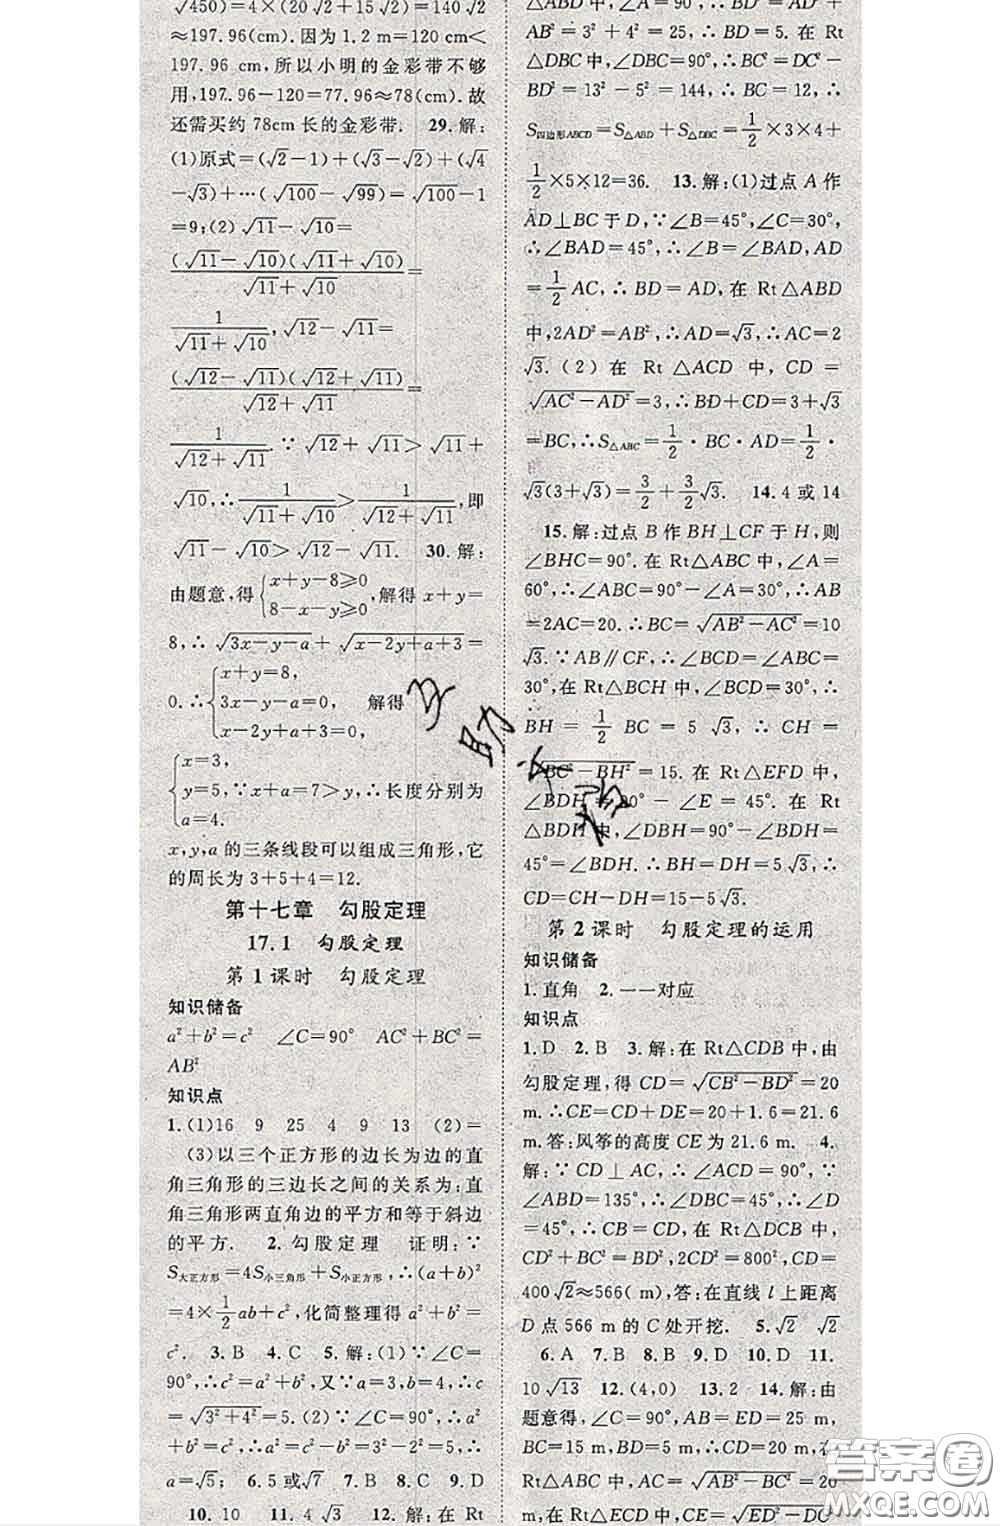 √450)=4×(20√2+15√2)=140√2
≈197.96(cm). 因为 1.2 m=120 cm<
197.96 cm,所以小明的金彩带不够
用,197.96-120=77.96≈78(cm). 故
还需买约 78cm 长的金彩带. 29.解:
(1)原式=(√2-1)+(√3-√2)+(√4
-√3)+…(√100-√99)=√100-1
=9;(2)√11-√10=
(√11-√10)(√11+√10)/(√11+√10)=
1/(√11+√10),√12-√11=
(√12-√11)(√12+√11)/(√12+√11)=
1/(√12+√11).∵√12+√11>√11+
√10,∴1/(√11+√10)>1/(√12+√11),即
√11-√10>√12-√11. 30.解:
由题意,得{x+y-8≥0 8-x-y≥0,解得 x+y=
8,∴√3x-y-a+√x-2y+a+3=
0.∴{x+y=8, 3x-y-a=0, x-2y+a+3=0, 解得
{x=3, y=5, a=4. ∵x+a=7>y,∴长度分别为
x,y,a 的三条线段可以组成三角形,它
的周长为 3+5+4=12.
第十七章 勾股定理
17.1 勾股定理
第 1 课时 勾股定理
知识储备
a²+b²=c² ∠C=90° AC²+BC²=
AB²
知识点
1.(1)16 9 25 4 9 13 (2)=
(3)以三个正方形的边长为边的直
角三角形的三边长之间的关系为:直
角三角形两直角边的平方和等于斜边
的平方. 2.勾股定理 证明:∵
S大正方形=4S小三角形+S小正方形,∴(a+b)²
=4×1/2ab+c²,化简整理得 a²+b²=
c². 3.B 4.C 5.解:(1)∵∠C=
90°,∴c²=a²+b²,又∵a=3,b=4,∴c
=√3²+4²=5.(2)∵∠C=90°,∴c²
=a²+b²,∴a²=c²-b²=3²-2²=5,∴
a=√5; 6.5 或√7 7.B 8.C 9.D
10.10 11.4√3 12.解:在 Rt
△ABD 中,∠A=90°,∴BD²=AD²+
AB²=3²+4²=25,∴BD=5. 在 Rt
△DBC 中,∠DBC=90°,∴BC²=DC²-
BD²=13²-5²=144,∴BC=12,∴
S四边形ABCD=S△ABD+S△DBC=1/2×3×4+
1/2×5×12=36. 13.解:(1)过点 A 作
AD⊥BC 于 D,∵∠B=45°,∠C=30°,
∴∠BAD=45°,∴∠B=∠BAD,AD
=1/2AC,∴BD=AD,在 Rt△ABD
中,2AD²=AB²,∴AD=√3,∴AC=2
√3.(2)在 Rt△ACD 中,CD=
√AC²-AD²=3,∴BD+CD=3+√3
=BC,∴S△ABC=1/2·BC·AD=1/2·
√3(3+√3)=3/2+3/2√3. 14.4 或 14
15.解:过点 B 作 BH⊥CF 于 H,则
∠BHC=90°. 在 Rt△ABC 中,∠A=
60°,∴∠ABC=90°-∠A=30°,∴AB
=2AC=20.∴BC=√AB²-AC²=10
√3.∵AB∥CF,∴∠BCD=∠ABC=
30°,在 Rt△BCH 中,∠BCD=30°,∴
BH=1/2BC=5√3,∴CH=
√BC²-BH²=15. 在 Rt△EFD 中,
∠BDH=90°-∠E=45°. 在 Rt
△BDH 中,∠DBH=90°-∠BDH=
45°=∠BDH.∴BH=DH=5√3,∴
CD=CH-DH=15-5√3.
第 2 课时 勾股定理的运用
知识储备
1.直角 2.一一对应
知识点
1.D 2.B 3.解:在 Rt△CDB 中,由
勾股定理,得 CD=√CB²-BD²=20
m.∴CE=CD+DE=20+1.6=21.6
m.答:风筝的高度 CE 为 21.6 m. 4.
解:∵CD⊥AC,∴∠ACD=90°,∵
∠ABD=135°,∴∠DBC=45°,∴∠D
=45°,∴CB=CD,在 Rt△DCB 中,
CD²+BC²=BD²,2CD²=800²,CD=
400√2≈566(m),答:在直线 l 上距离
D 点 566 m 的 C 处开挖. 5.√2 √2
6.A 7.B 8.B 9.D 10.D 11.
10√13 12.(4,0) 13.2 14.解:由
题意得,∠C=90°,AB=ED=25 m,
BC=15 m,BD=5 m,∴DC=20 m,在
Rt△ABC 中,AC=√AB²-BC²=20
m,在 Rt△ECD 中,CE=√ED²-DC²
答案圈
MXQE.COM